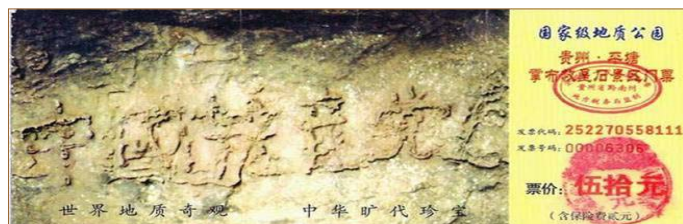 中國共産党
世界地质奇观 中华旷代珍宝
国家级地质公园
贵州·平塘
掌布救星石景区门票
贵州省黔南州
发票代码：252270558111
发票号码：00006306
票价：伍拾元
（含保险费贰元）